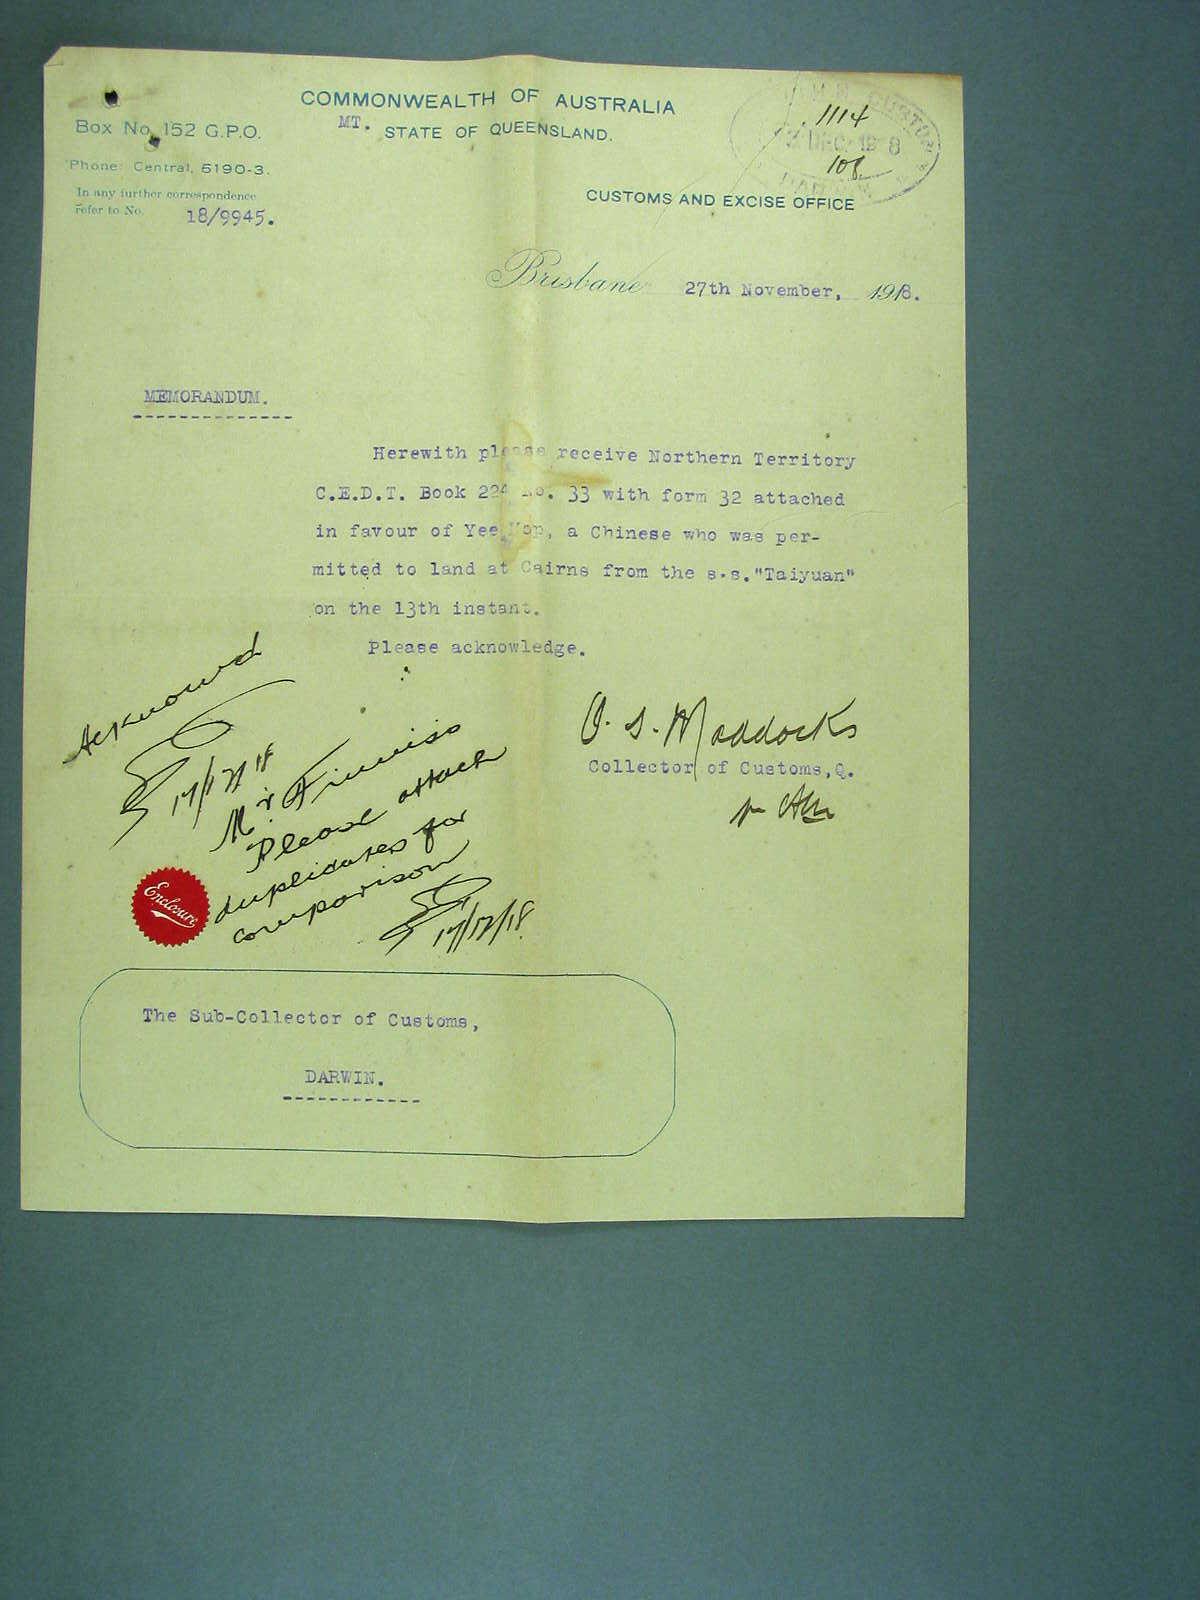 COMMONWEALTH OF AUSTRALIA
MT. STATE OF QUEENSLAND.
Box No. 152 G.P.O.
Phone: Central, 6190-3.
In any further correspondence
refer to No. 18/9945.
1114
DEC 1918
108
CUSTOMS AND EXCISE OFFICE
Brisbane 27th November, 1918.
MEMORANDUM.
Herewith please receive Northern Territory
C.E.D.T. Book 224 No. 33 with form 32 attached
in favour of Yee Kop, a Chinese who was per-
mitted to land at Cairns from the s.s. "Taiyuan"
on the 13th instant.
Please acknowledge.
O. S. Maddocks
Collector of Customs, Q.
Acknowd
17/12/18
Mr Finniss
Please attach
duplicates for
comparison
17/12/18
Enclosure
The Sub-Collector of Customs,
DARWIN.